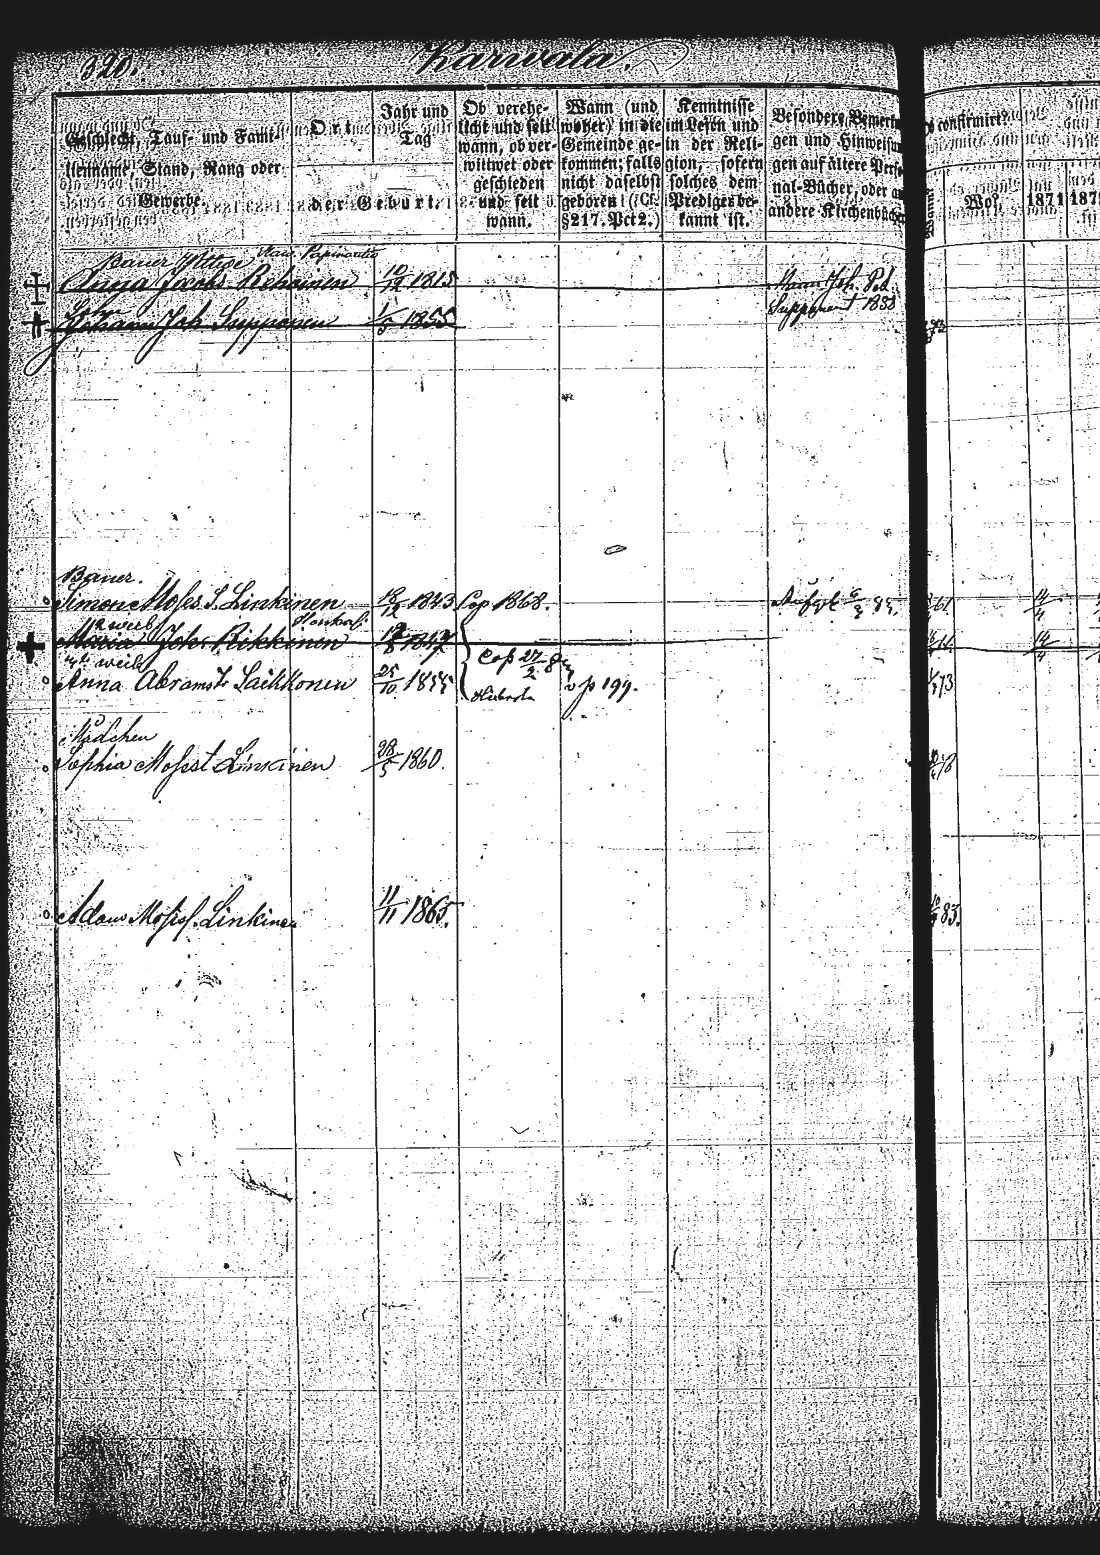 320.
Karwala.
Geschlecht, Tauf- und Fami-
lienname, Stand, Rang oder
Gewerbe.
Ort
der Geburt.
Jahr und
Tag
Ob verehe-
licht und seit
wann, ob ver-
wittwet oder
geschieden
und seit
wann.
Wann (und
woher) in die
Gemeinde ge-
kommen; falls
nicht daselbst
geboren (Cf.
§217. Pct 2.)
Kenntnisse
im Lesen und
in der Reli-
gion, sofern
solches dem
Prediger be-
kannt ist.
Besondere Bemerk
gen und Hinweisun
gen auf ältere Pers
nal-Bücher, oder a
andere Kirchenbüche
confirmirt?
Wann?
Wo?
1871
187
Bauer Wittwe
Anna Jacobs Rehoinen 10/12 1815 Mann Joh. Pet.
Johann Joh. Supponen 1/5 1855 Supponen † 1858
73
Bauer.
Simon Moses S. Linkinen 18/12 1843 Cop 1868. 61 14/4
2 weib
Maria Joh. Rikkinen 1847 14/4
weib Cop 27/2
Anna Abrams T. Laikkonen 25/10 1855 p 199. 73
Mädchen
Sophia Mosist Linkinen 28/5 1860. 78
Adam Mosisf. Linkinen 11/11 1865. 83.